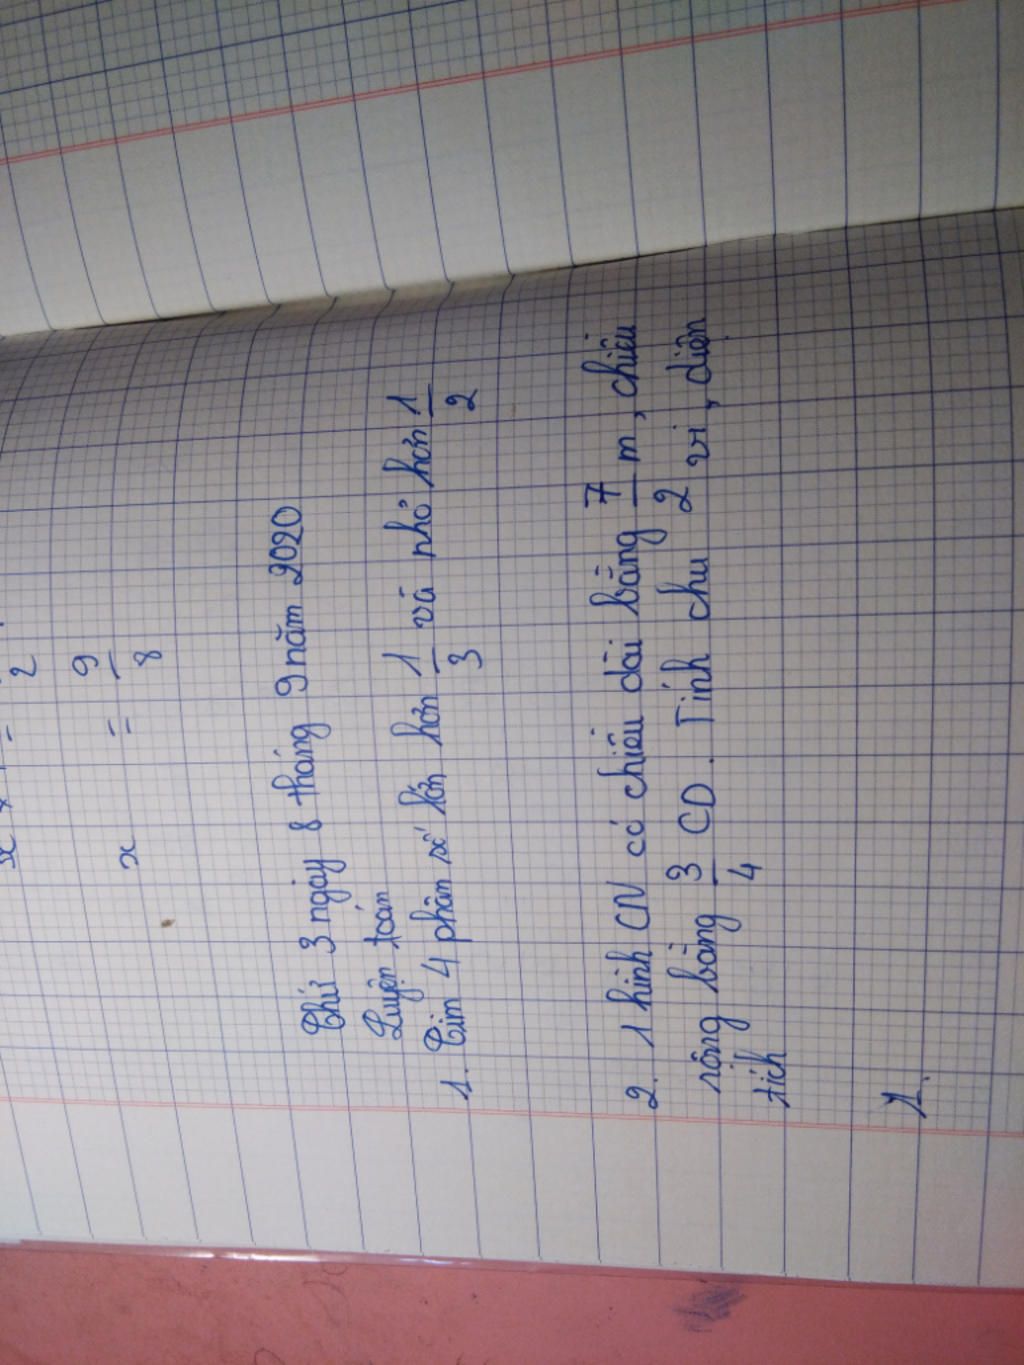 x = 9/8
Thứ 3 ngày 8 tháng 9 năm 2020
Luyện toán
1. Tìm 4 phân số lớn hơn 1/3 và nhỏ hơn 1/2
2. 1 hình CN có chiều dài bằng 7/2 m, chiều
rộng bằng 3/4 CD. Tính chu vi, diện
tích
1.